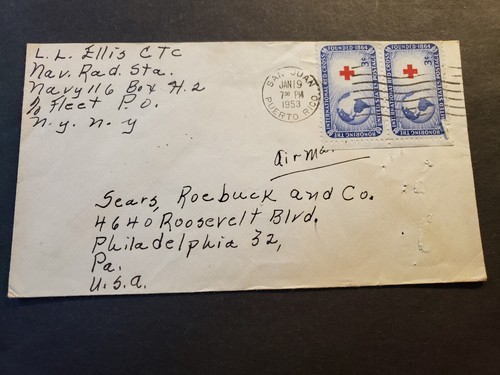 L. L. Ellis CTC
Nav. Rad. Sta.
Navy 116 Box H.2
c/o Fleet P.O.
N.Y. N.Y
SAN JUAN
JAN 19
7 30 PM
1953
PUERTO RICO
FOUNDED 1864
3¢
INTERNATIONAL RED CROSS
HONORING THE
UNITED STATES POSTAGE
FOUNDED 1864
3¢
INTERNATIONAL RED CROSS
HONORING THE
UNITED STATES POSTAGE
air Ma
Sears, Roebuck and Co.
4640 Roosevelt Blvd.
Philadelphia 32,
Pa.
U.S.A.